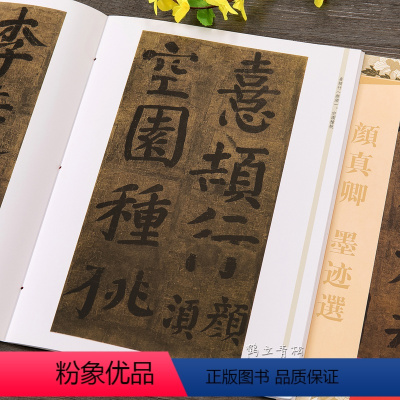 憙頡行
顔
須
空園種桃
李
顔真卿 墨迹選
粉象优品
正版图书 品质保证